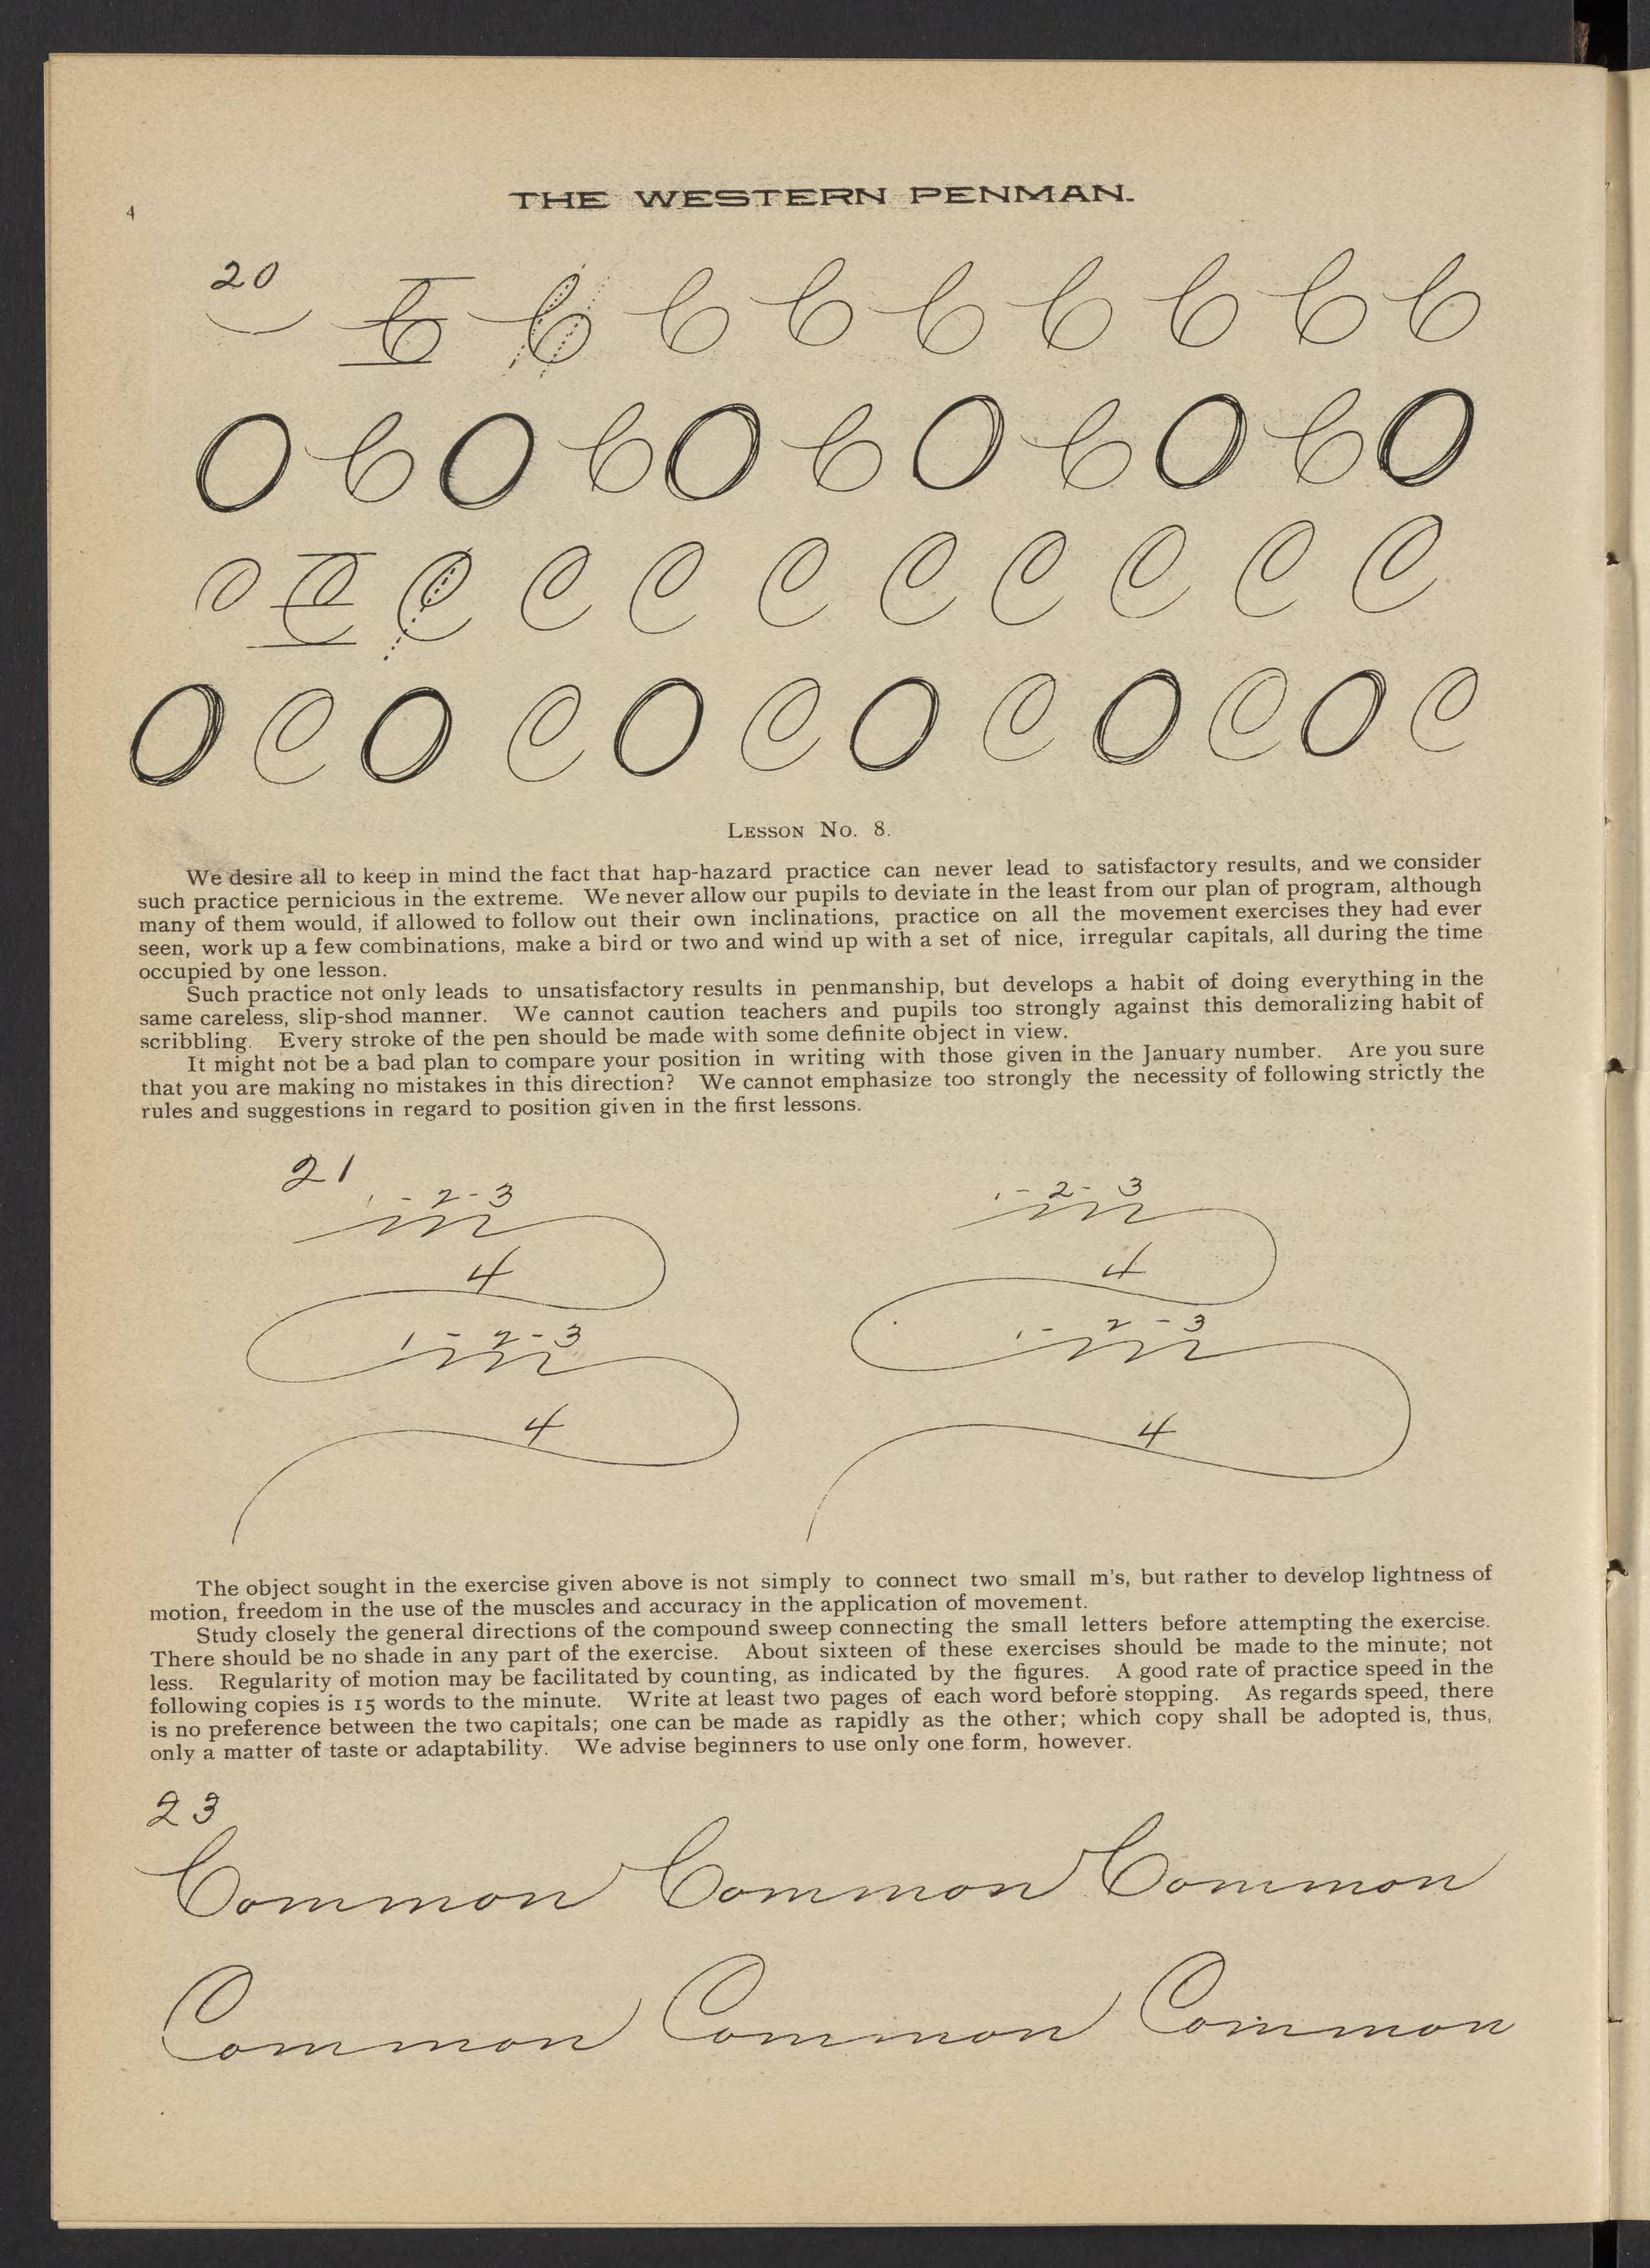 THE WESTERN PENMAN.
4
20
C C C C C C C C C
O C O C O C O C O C O
C C C C C C C C C C
O C O C O C O C O C O C
LESSON NO. 8.
We desire all to keep in mind the fact that hap-hazard practice can never lead to satisfactory results, and we consider
such practice pernicious in the extreme. We never allow our pupils to deviate in the least from our plan of program, although
many of them would, if allowed to follow out their own inclinations, practice on all the movement exercises they had ever
seen, work up a few combinations, make a bird or two and wind up with a set of nice, irregular capitals, all during the time
occupied by one lesson.
Such practice not only leads to unsatisfactory results in penmanship, but develops a habit of doing everything in the
same careless, slip-shod manner. We cannot caution teachers and pupils too strongly against this demoralizing habit of
scribbling. Every stroke of the pen should be made with some definite object in view.
It might not be a bad plan to compare your position in writing with those given in the January number. Are you sure
that you are making no mistakes in this direction? We cannot emphasize too strongly the necessity of following strictly the
rules and suggestions in regard to position given in the first lessons.
21
1 - 2 - 3 1 - 2 - 3
m m
4 4
1 - 2 - 3 1 - 2 - 3
m m
4 4
The object sought in the exercise given above is not simply to connect two small m's, but rather to develop lightness of
motion, freedom in the use of the muscles and accuracy in the application of movement.
Study closely the general directions of the compound sweep connecting the small letters before attempting the exercise.
There should be no shade in any part of the exercise. About sixteen of these exercises should be made to the minute; not
less. Regularity of motion may be facilitated by counting, as indicated by the figures. A good rate of practice speed in the
following copies is 15 words to the minute. Write at least two pages of each word before stopping. As regards speed, there
is no preference between the two capitals; one can be made as rapidly as the other; which copy shall be adopted is, thus,
only a matter of taste or adaptability. We advise beginners to use only one form, however.
23
Common Common Common
Common Common Common